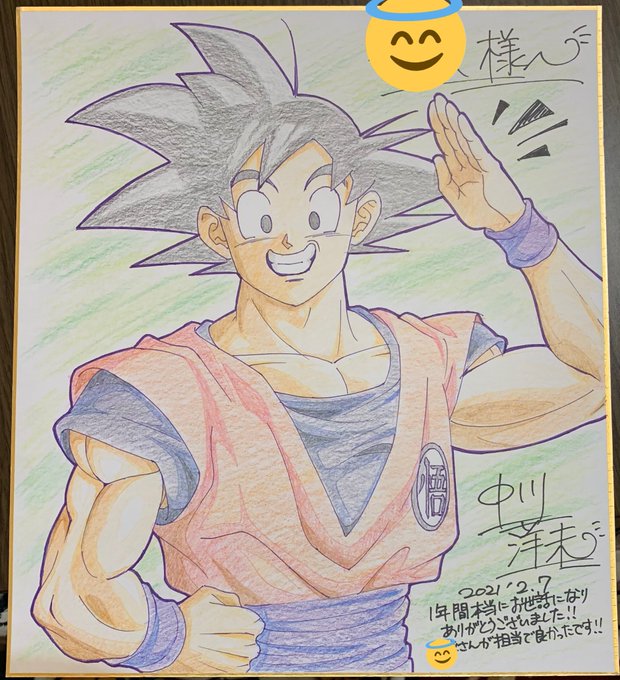 様へ
悟
中川
洋未
2021.2.7
1年間本当にお世話になり
ありがとうございました!!
さんが担当で良かったです!!